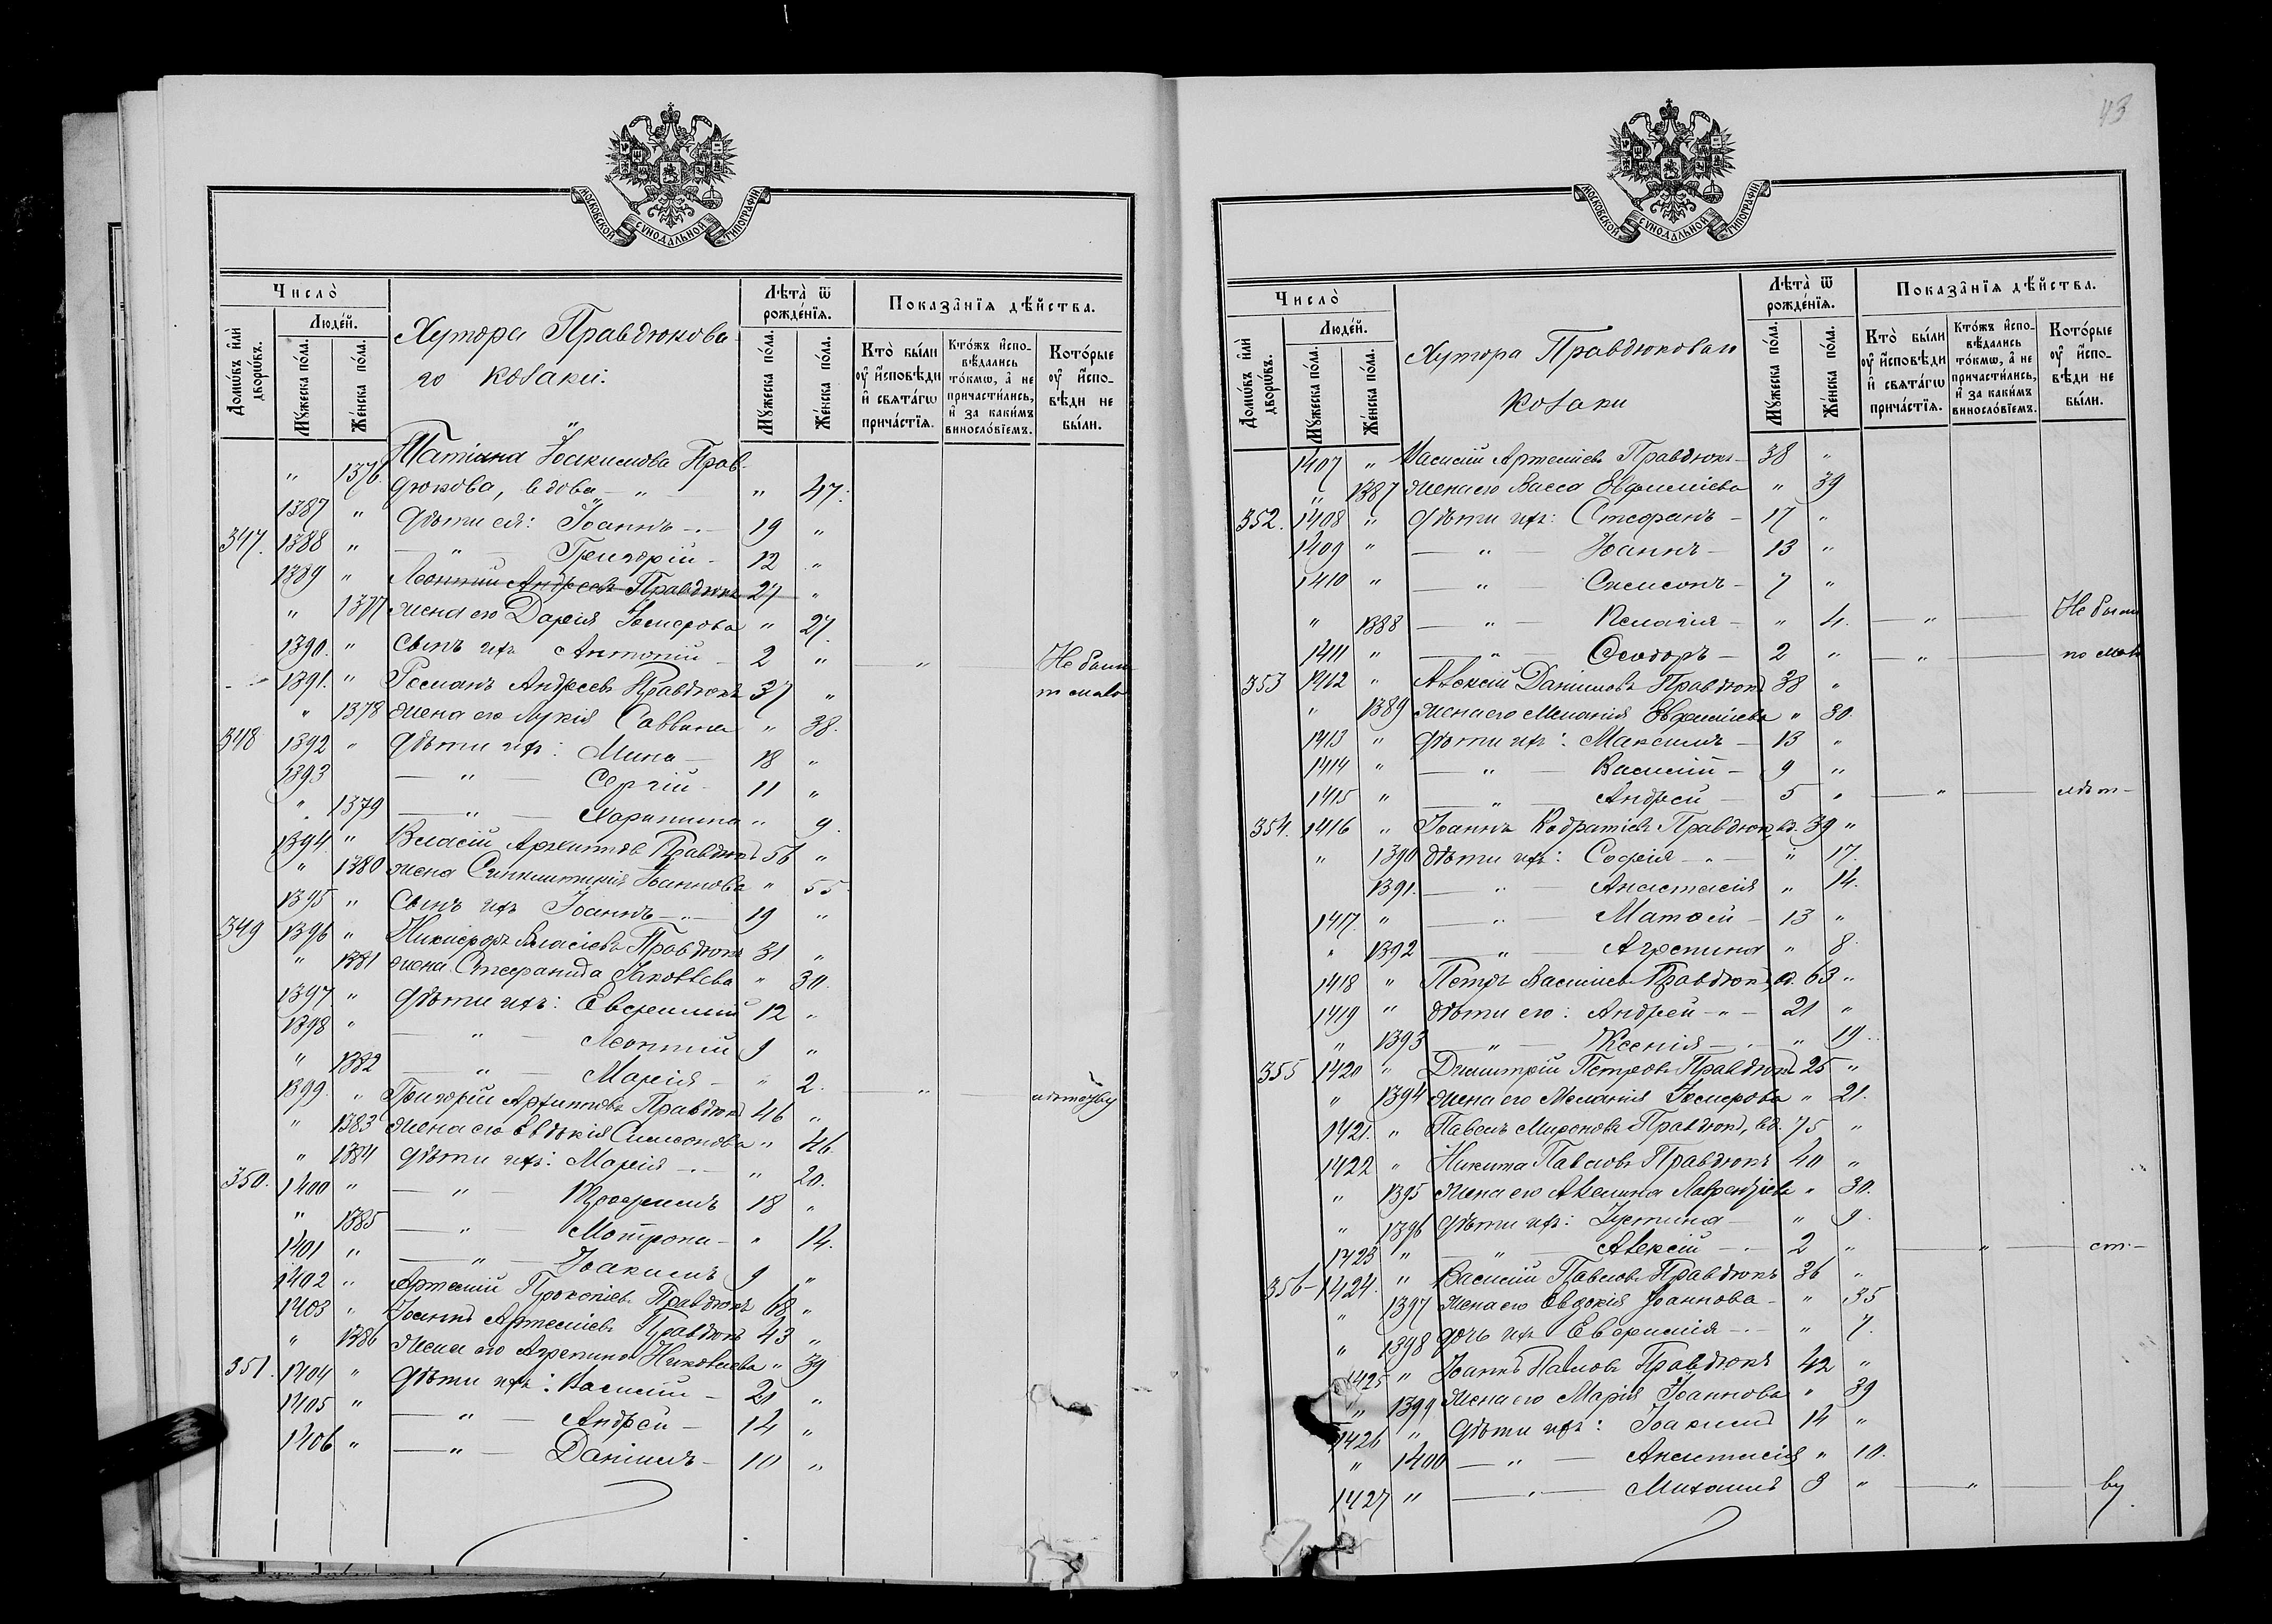 43
МОСКОВСКОЙ СѴНОДАЛЬНОЙ ТИПОГРАФІИ
Число̀
Людє́й.
Домѡ́въ и҆лѝ дворѡ́въ.
Мꙋ́жеска по́ла.
Же́нска по́ла.
Хутора Правдюкова-
го козаки.
Лѣта̀ ѿ рожде́нїѧ.
Мꙋ́жеска по́ла.
Же́нска по́ла.
Показа̑нїѧ дѣ́йства.
Кто̀ бы́ли оу҆ и҆сповѣди и҆ свѧта́гѡ прича́стїѧ.
Кто́жъ и҆спо-вѣдались то́кмѡ, а҆ не причасти́лись, и҆ за каки́мъ винослові́емъ.
Кото́рые оу҆ и҆спо-вѣди не бы́ли.
" 1376. Татіана Іоакимова Прав-
дюкова, вдова — " — " 47.
1387 " Дѣти ея: Іоаннъ — 19 "
347. 1388 " — " — Григорій — 12 "
1389 " Леонтий Андреевъ Правдюкъ 27 "
" 1377 Жена его Дарія Гомерова " 27.
1390. " Сынъ ихъ Антоній — 2 " " Не были
1391. " Романъ Андреевъ Правдюкъ 37 "
" 1378 Жена его Лукія Саввина " 38.
348 1392 " Дѣти ихъ: Мина — 18 "
1393 — " — Сергій — 11 "
" 1379 — " — Харитина " 9.
1394 " Власій Архиповъ Правдюкъ 56 "
" 1380 Жена Синклитикія Іоаннова " 55
1395 " Сынъ ихъ Іоаннъ — 19 "
349 1396 " Никифоръ Власіевъ Правдюкъ 31 "
" 1381 Жена Стефанида Іаковлева " 30.
1397 " Дѣти ихъ: Евфимий 12 "
1398 " — " — Леонтий 9 "
" 1382 — " — Марія — " 2. — "
1399. " Григорій Архиповъ Правдюкъ 46 "
" 1383 Жена его Евдокія Симеонова " 46.
" 1384 Дѣти ихъ: Марія — " 20.
350. 1400 " — " — Трофимъ 18 "
" 1385 — " — Мотрона — " 14.
1401 " — " — Іоакимъ 9 "
1402 " Артемий Прокопіевъ Правдюкъ 68 "
1403 " Іоаннъ Артеміевъ Правдюкъ 43 "
" 1386 Жена его Агрепина Николаева " 39
351. 1404 " Дѣти ихъ: Василий — 21 "
1405 " — " — Андрей — 14 "
1406 " — " — Даніилъ — 10 "
МОСКОВСКОЙ СѴНОДАЛЬНОЙ ТИПОГРАФІИ
Число̀
Людє́й.
Домѡ́въ и҆лѝ дворѡ́въ.
Мꙋ́жеска по́ла.
Же́нска по́ла.
Хутора Правдюковаго
козаки
Лѣта̀ ѿ рожде́нїѧ.
Мꙋ́жеска по́ла.
Же́нска по́ла.
Показа̑нїѧ дѣ́йства.
Кто̀ бы́ли оу҆ и҆сповѣди и҆ свѧта́гѡ прича́стїѧ.
Кто́жъ и҆спо-вѣдались то́кмѡ, а҆ не причасти́лись, и҆ за каки́мъ винослові́емъ.
Кото́рые оу҆ и҆спо-вѣди не бы́ли.
1407 " Василий Артеміевъ Правдюкъ — 38 "
" 1387 Жена его Васса Евфиміева " 39
352. 1408 " Дѣти ихъ: Стефанъ — 17 "
1409 " — " — Іоаннъ — 13 "
1410 " — " — Симеонъ — 7 "
" 1388 — " — Пелагія — " 4. — " — Не были
1411 " — " — Ѳеодоръ — 2 " — " — по мало
353 1412 " Алексій Даніиловъ Правдюкъ 38 "
" 1389 Жена его Меланія Евфиміева " 30.
1413 " Дѣти ихъ: Максимъ — 13 "
1414 " — " — Василий — 9 "
1415 " — " — Андрей — 5 " — " — лѣт-
354. 1416 " Іоаннъ Кодратіевъ Правдюкъ, вд. 39 "
" 1390 Дѣти ихъ: Софія — " — " 17.
1391. — " — Анастасія " 14.
1417. " — " — Матѳей — 13 "
" 1392 — " — Агрепина " 8.
1418 " Петръ Василиевъ Правдюкъ, в. 63 "
1419 " Дѣти его: Андрей — " — 21 "
" 1393 — " — Ксенія — " 19.
355 1420 " Димитрій Петровъ Правдюкъ 25 "
" 1394 Жена его Меланія Гомерова " 21.
1421. " Павелъ Мироновъ Правдюкъ, вд. 75 "
1422 " Никита Павловъ Правдюкъ 40 "
" 1395 Жена его Акелина Лаврентіева " 30.
" 1396 Дѣти ихъ: Іустина — " 9.
1423 " — " — Алексій — 2 " — " — ст-
356 - 1424. " Василий Павловъ Правдюкъ 36 "
" 1397 Жена его Евдокія Іоаннова — " 35
" 1398 Дочь ихъ Евфимія — " 7.
1425 " Іоаннъ Павловъ Правдюкъ 42 "
" 1399 Жена его Марія Іоаннова " 39
1426 " Дѣти ихъ: Іоакимъ 14 "
" 1400 — " — Анастасія " 10.
1427 " — " — Михаилъ 8 " — " — ву